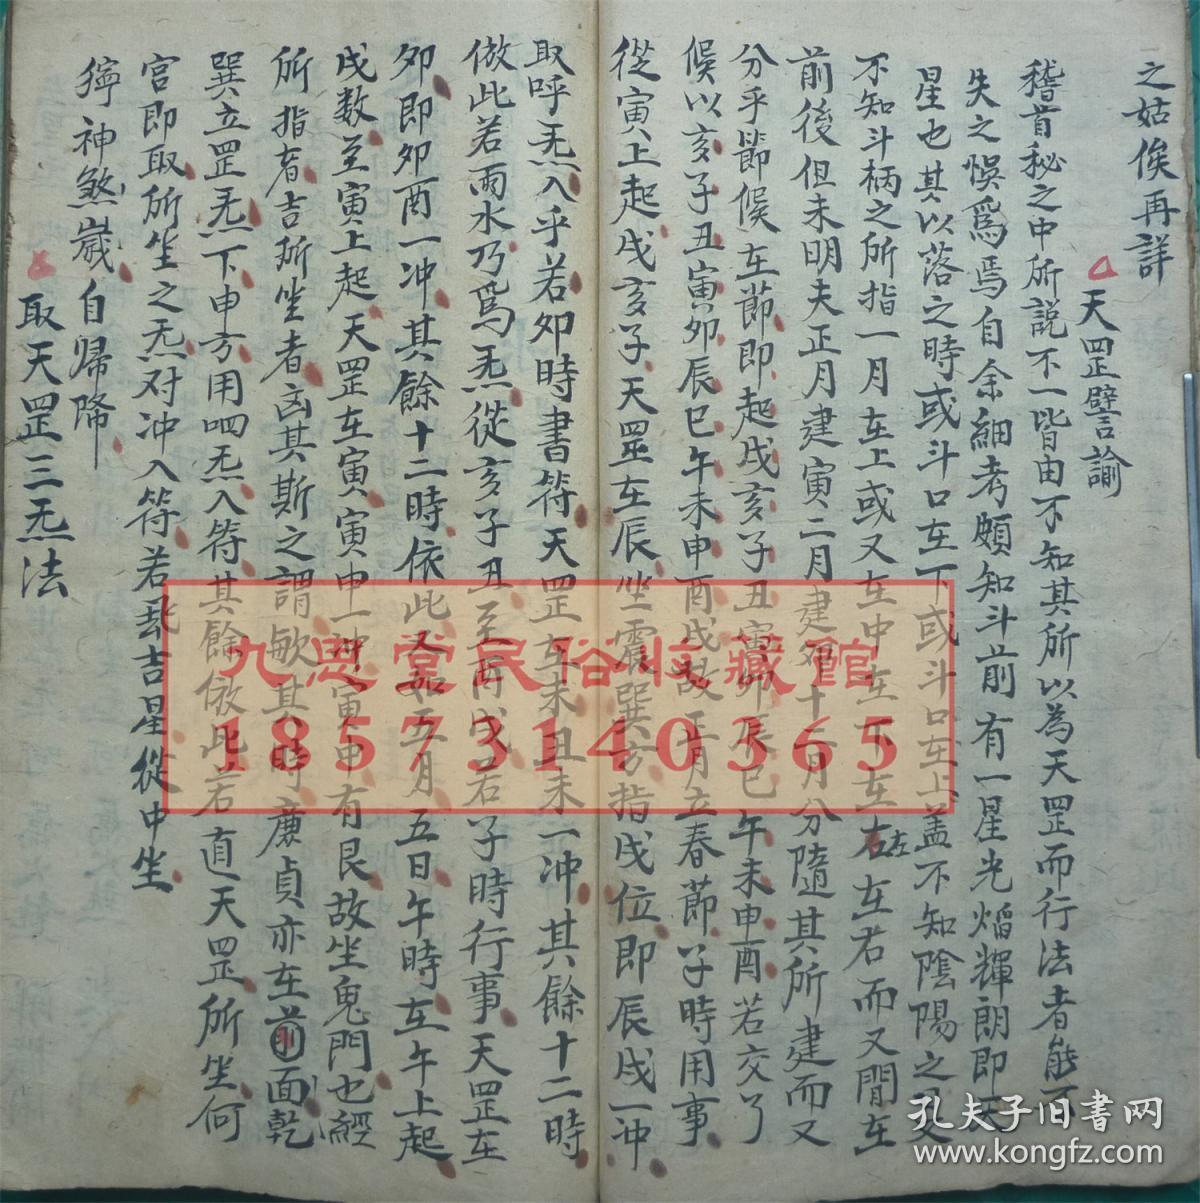 之姑俟再詳
天罡譬諭
稽首秘之中所説不一皆由不知其所以為天罡而行法者能不
失之悞爲焉自余細考頗知斗前有一星光熖輝朗即天
星也其以落之時或斗口在下或斗口在上盖不知陰陽之又
不知斗柄之所指一月在上或又在中在下在右左在若而又閒在
前後但未明夫正月建寅二月建夘十二月分隨其所建而又
分乎節候在節即起戌亥子丑寅夘辰巳午未申酉若交了
候以亥子丑寅夘辰巳午未申酉戌故正月立春節子時用事
從寅上起戌亥子天罡在辰坐震巽方指戌位即辰戌一冲
取呼炁入乎若夘時書符天罡在未丑未一冲其餘十二時
倣此若雨水乃爲炁從亥子丑至酉戌若子時行事天罡在
夘即夘酉一冲其餘十二時依此又如五月五日午時在午上起
戌数至寅上起天罡在寅寅申一冲寅申有艮故坐鬼門也經
所指者吉所坐者凶其斯之謂歟其時廉貞亦在前面乾
巽立罡炁下申方用呬炁入符其餘倣此若直天罡所坐何
宫即取所坐之炁对冲入符若是吉星從中坐
獰神煞嵗自歸降
取天罡三炁法
九思堂民俗收藏館
18573140365
孔夫子旧书网
www.kongfz.com